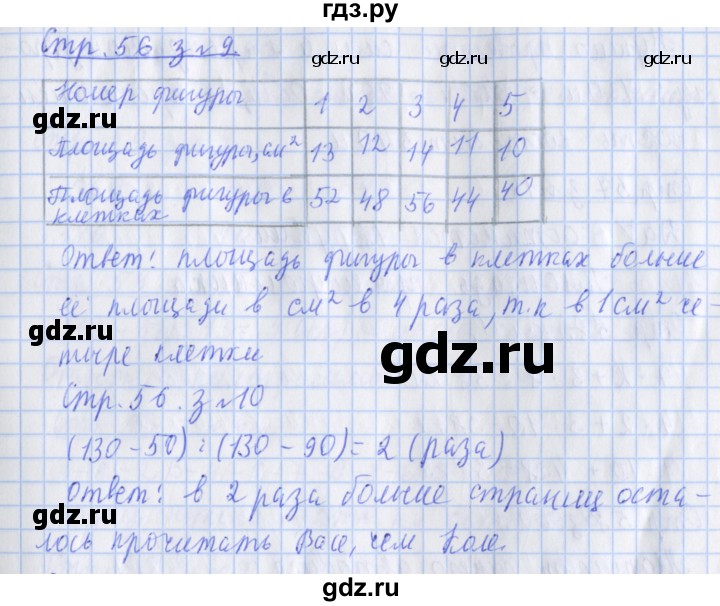 гдз.ру
Стр. 56 з№9.
gdz.ru gdz.ru
Номер фигуры 1 2 3 4 5
Площадь фигуры, см² 13 12 14 11 10
Площадь фигуры в клетках 52 48 56 44 40
gdz.ru gdz.ru
Ответ: площадь фигуры в клетках больше
её площади в см² в 4 раза, т.к в 1 см² че-
тыре клетки
gdz.ru
Стр. 56. з№10
(130-50):(130-90)=2 (раза)
Ответ: в 2 раза больше страниц оста-
gdz.ru gdz.ru
лось прочитать Васе, чем Коле.
gdz.ru